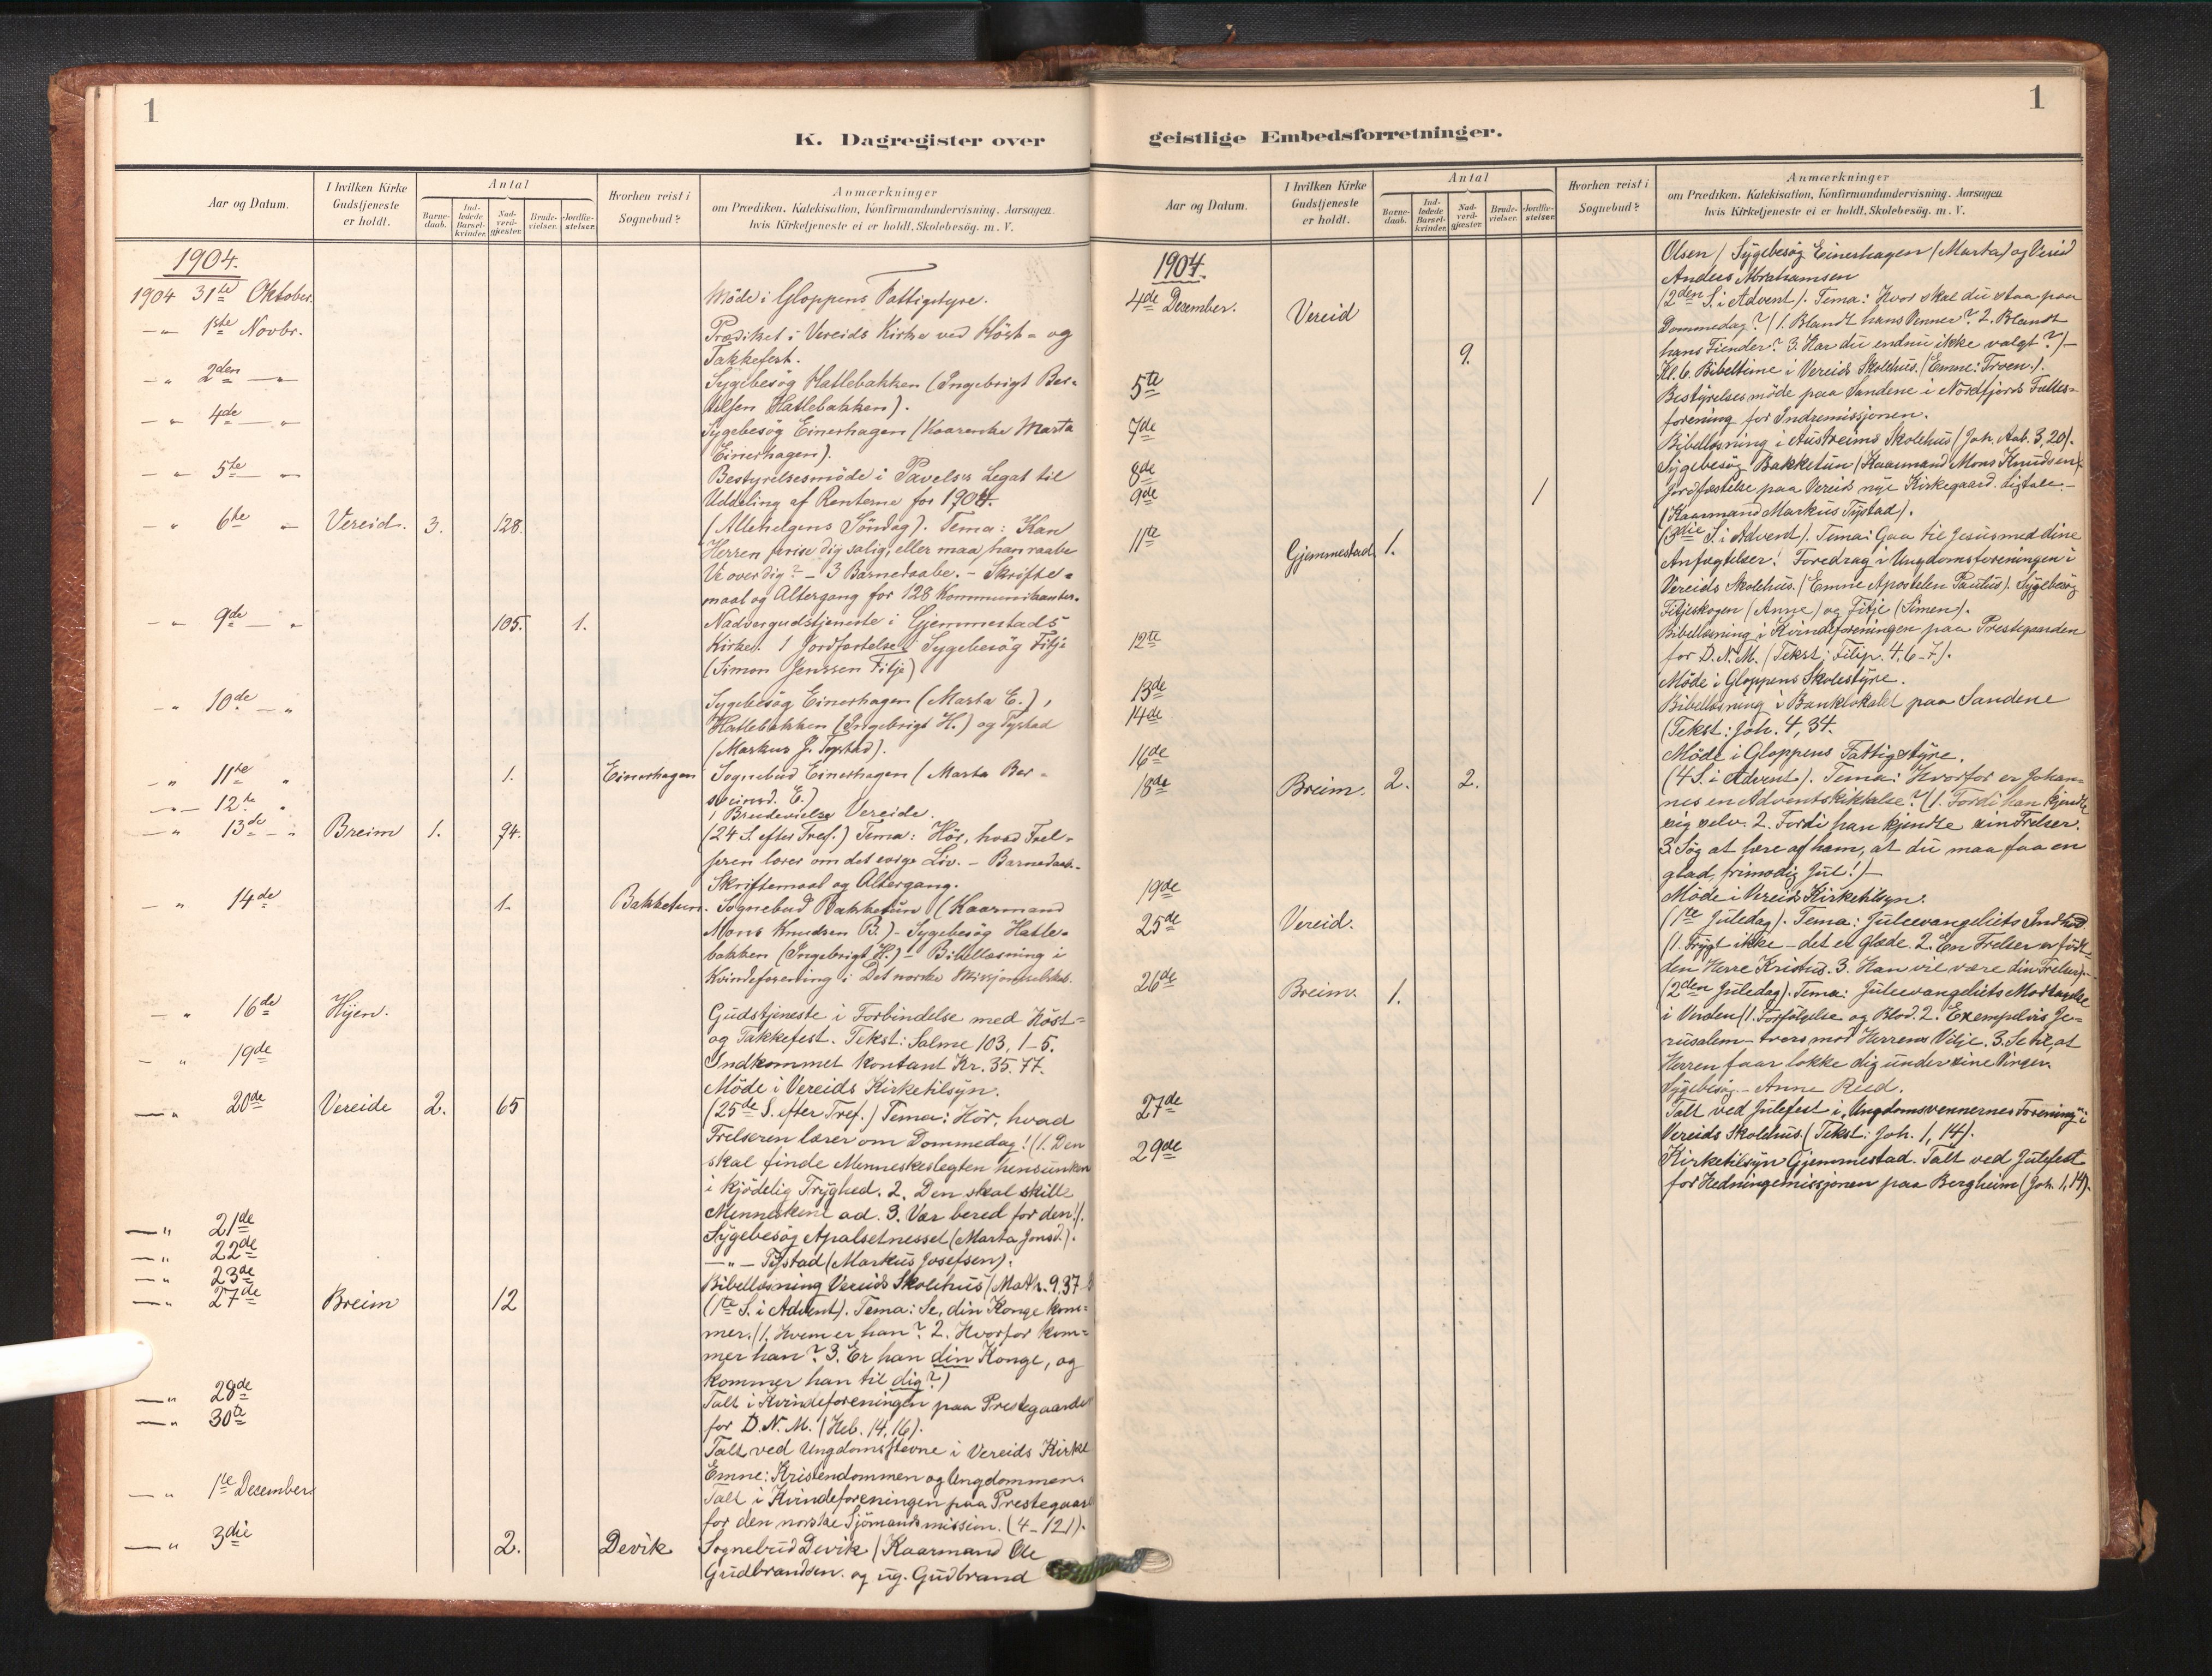 1
K. Dagregister over
Aar og Datum.
I hvilken Kirke Gudstjeneste er holdt.
Antal
Barne-daab.
Ind-ledede Barsel-kvinder.
Nad-verd-gjæster.
Brude-vielser.
Jordfæ-stelser.
Hvorhen reist i Sognebud?
Anmærkninger
om Prædiken. Katekisation, Konfirmandundervisning. Aarsagen
hvis Kirketjeneste ei er holdt. Skolebesög. m. V.
1904.
1904 31te Oktober. Möde i Gloppens Fattigstyre.
-„- 1ste Novbr. Prædiket i Vereids Kirke ved Höst- og
Takkefest.
-„ 2den -„- Sygebesög Hatlebakken (Ingebrigt Ber-
Hatlebakken).
-„ 4de -„- Sygebesög Einerhagen (Kaarenke Marta
Einerhagen).
-„ 5te -„- Bestyrelsesmöde i Pavelss Legat til
Uddeling af Renterne for 1904.
-„ 6te „ Vereid. 3. 128. (Allehelgens Söndag). Tema: Kan
Herren prise dig salig, eller maa han raabe
Ve over dig? - 3 Barnedaabe. - Skrifte-
maal og Altergang for 128 Kommunikanter.
-„ 9de -„ 105. 1. Nadvergudstjeneste i Gjemmestads
Kirke. 1 Jordfæstelse. Sygebesög Fitje
(Simon Jenssen Fitje)
-„ 10de -„ Sygebesög Einerhagen (Marta E.),
Hatlebakken (Ingebrigt H.) og Tystad
(Markus J. Tystad).
-„ 11te „ 1. Einerhagen Sognebud Einerhagen (Marta Ber-
sveinsd. E.)
-„- 12te „ 1 Brudevielse Vereide.
-„ 13de -„ Breim 1. 94. (24 S. efter Tref.) Tema: Hör, hvad Frel-
seren lærer om det evige Liv. - Barnedaab-
Skriftemaal og Altergang.
-„ 14de 1. Bakketun. Sognebud Bakketun (Kaarmand
Mons Knudsen B.) - Sygebesög Hatle-
bakken (Ingebrigt H.) - Bibellæsning i
Kvindeforening i Det norske Missjonsselskab.
-„ 16de Hyen. Gudstjeneste i Forbindelse med Höst-
og Takkefest. Tekst: Salme 103, 1-5.
Indkommet kontant Kr. 35.77.
-„ 19de Möde i Vereids Kirketilsyn.
-„ 20de Vereide 2. 65 (25de S. efter Tref.) Tema: Hör, hvad
Frelseren lærer om Dommedag! (1. Den
skal finde Menneskeslegten hensunken
i kjödelig Tryghed. 2. Den skal skille
Menneskene ad. 3. Vær bered for den!).
-„ 21de Sygebesög Apalsetnesset (Marta Jonsd.).
-„ 22de -„- Tystad (Markus Josefsen).
-„ 23de Bibellæsning Vereids Skolehus (Math. 9,37
-„ 27de Breim 12 (1ste S. i Advent). Tema: Se, din Konge kom-
mer. (1. Hvem er han? 2. Hvorfor kom-
mer han? 3. Er han din Konge, og
kommer han til dig?)
-„ 28de Talt i Kvindeforeningen paa Prestegaarden
for D.N.M. (Heb. 14,16).
-„ 30te Talt ved Ungdomsstevne i Vereids Kirke
Emne: Kristendommen og Ungdommen.
-„ 1ste December. Talt i Kvindeforeningen paa Prestegaard
for den norske Sjömandsmission. (4-121).
-„ 3die 2. Devik Sognebud Devik (Kaarmand Ole
Gudbrandsen og ug. Gudbrand
1
geistlige Embedsforretninger.
Aar og Datum.
I hvilken Kirke Gudstjeneste er holdt.
Antal
Barne-daab.
Ind-ledede Barsel-kvinder.
Nad-verd-gjæster.
Brude-vielser.
Jordfæ-stelser.
Hvorhen reist i Sognebud?
Anmærkninger
om Prædiken. Katekisation, Konfirmandundervisning. Aarsagen
hvis Kirketjeneste ei er holdt. Skolebesög. m. V.
1904.
Olsen / Sygebesög Einerhagen (Marta) og Vereid
Anders Abrahamsen
4de Desember. Vereid 9. (2den S. i Advent). Tema: Hvor skal du staa paa
Dommedag? (1. Blandt hans Venner? 2. Blandt
hans Fiender? 3. Har du endnu ikke valgt?) -
Kl. 6. Bibeltime i Vereids Skolehus. (Emne: Troen.).
5te Bestyrelsesmöde paa Sandene i Nordfjords Fælles-
forening for Indremissjonen.
7de Bibellæsning i Austreims Skolehus (Joh. Aab. 3,20).
8de Sygebesög Bakketun (Kaarmand Mons Knudsen)
9de 1 Jordfæstelse paa Vereids nye Kirkegaard. Ligtale. -
(Kaarmand Markus Tystad).
11te Gjemmestad 1. (3die S. i Advent). Tema: Gaa til Jesus med dine
Anfægtelser! Foredrag i Ungdomsforeningen i
Vereids Skolehus. (Emne Apostelen Paulus). Sygebesög
Fitjeskogen (Anne) og Fitje (Simen).
12te Bibellæsning i Kvindeforeningen paa Prestegaarden
for D.N.M. (Tekst: Filip. 4,6-7).
13de Möde i Gloppens Skolestyre.
14de Bibellæsning i Banklokalet paa Sandene
(Tekst: Joh. 4,34.
16de Möde i Gloppens Fattigstyre.
18de Breim. 2. 2. (4 S. i Advent). Tema: Hvorfor er Johan-
nes en Adventskikkelse? (1. Fordi han kjendte
sig selv. 2. Fordi han kjendte sin Frelser.
3. Søg at lære af ham, at du maa faa en
glad, frimodig Jul!) -
19de Möde i Vereids Kirketilsyn.
25de Vereid. (1ste Juledag). Tema: Juleevangeliets Indhold.
(1. Frygt ikke - det er glæde. 2. En Frelser er födt
den Herre Kristus. 3. Han vil være din Frelser) -
26de Breim. 1. (2den Juledag). Tema: Juleevangeliets Modtagelse
i Verden (1. Forfölgelse og Blod. 2. Exempelvis Je-
rusalem - tvers mod Herrens Vilje. 3. Se til, at
Herren faar lokke dig under sine Vinger.
Sygebesög - Anne Reed.
27de Talt ved Julefest i „Ungdomsvennernes Forening" i
Vereids Skolehus. (Tekst: Joh. 1, 14).
29de Kirketilsyn Gjemmestad. Talt ved Julefest
for Hedningemissjonen paa Bergheim (Joh. 1,14).